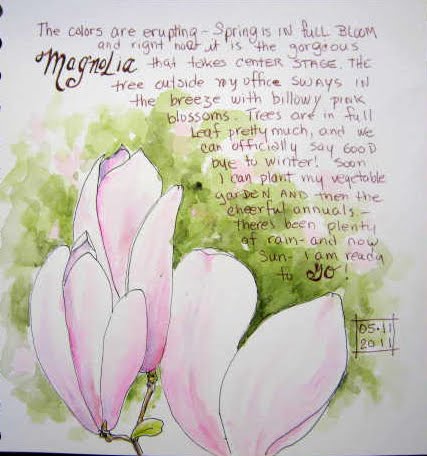 The colors are erupting - Spring is IN full BLOOM
and right now it is the gorgeous
Magnolia that takes CENTER STAGE. THE
tree outside my office SWAYS IN
the breeze with billowy pink
blossoms. Trees are in full
Leaf pretty much, and we
can officially say GOOD
bye to winter! Soon
I can plant my vegetable
gaRDEN AND then the
cheerful annuals -
theres been plenty
of rain - and now
Sun - I am ready
to GO!
05.11
2011